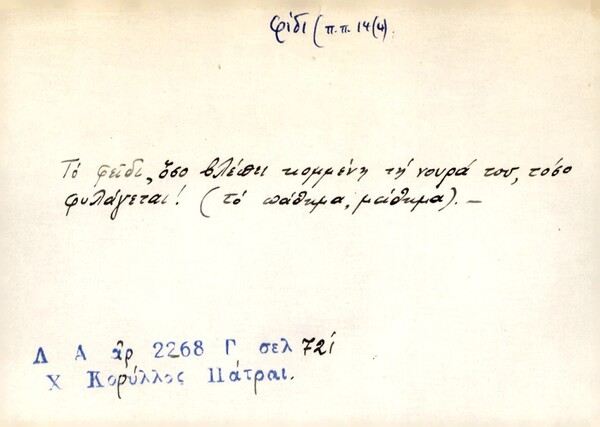 φίδι (π.π. 14(4).
Τό φεῖδι, ὅσο βλέπει κομμένη τή νουρά του, τόσο
φυλάγεται! (τό πάθημα, μάθημα). –
Λ Α ἀρ 2268 Γ σελ 721
Χ Κορύλλος Πάτραι.